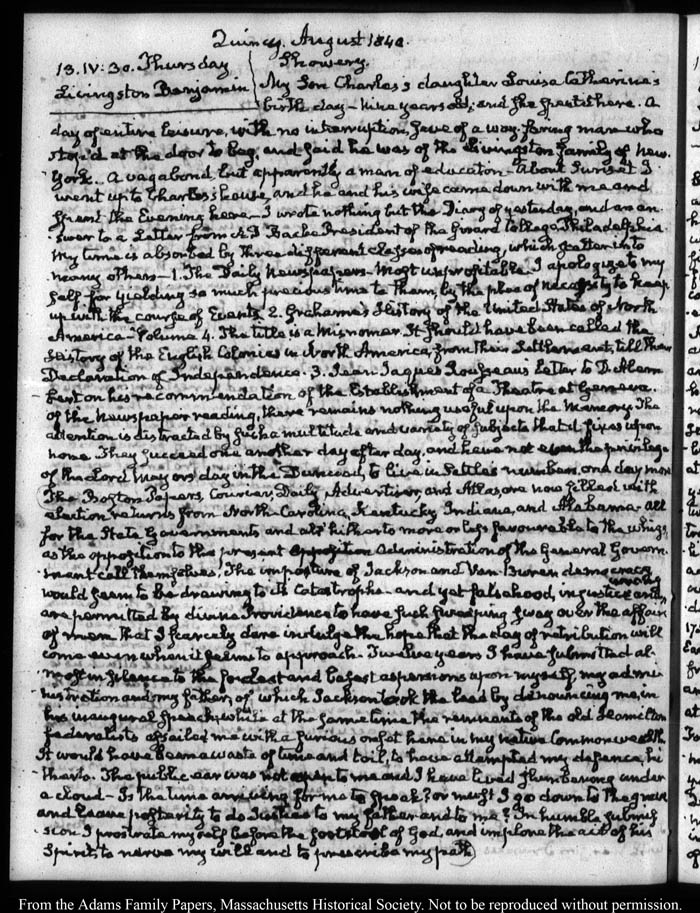 Quincy. August 1840.
13. IV:30. Thursday
Livingston Benjamin
Showery.
My Son Charles's daughter Louisa Catherine's
birth day — nine years old; and she spent here. A
day of entire leisure, with no interruption, save of a way-faring man who
stop'd at the door to beg, and said he was of the Livingston family of New-
York. A vagabond but apparently a man of education — About Sunset I
went up to Charles's house, and he and his wife came down with me and
spent the Evening here — I wrote nothing but the Diary of yesterday, and an an-
swer to a Letter from A. D. Bache President of the Girard College Philadelphia
My time is absorbed by three different classes of reading, which scatter into
many others — 1. The Daily Newspapers. Most unprofitable. I apologize to my
self for yielding so much precious time to them, by the plea of necessity to keep
up with the course of Events. 2. Grahame's History of the United States of North
America — Volume 4. The title is a Misnomer. It should have been called the
History of the English Colonies in North America, from their Settlement, till their
Declaration of Independence. 3. Jean Jaques Rousseau's Letter to D'Alem
bert on his recommendation of the Establishment of a Theatre at Geneva.
Of the Newspaper reading, there remains nothing useful upon the Memory. The
attention is distracted by such a multitude and variety of subjects that it fixes upon
none. They succeed one another day after day, and have not even the privilege
of the Lord Mayors' day in the Dunciad, to live in Settle's numbers, one day more
The Boston Papers, Courier, Daily Advertiser, and Atlas, are now filled with
election returns from North-Carolina, Kentucky Indiana, and Alabama — all
for the State Governments and all hitherto more or less favourable to the whigs,
as the opposition to the present Administration of the General Govern-
ment call themselves. The imposture of Jackson and Van Buren democracy
would seem to be drawing to its catastrophe — and yet falsehood, injustice and wrong
are permitted by divine Providence to have such sweeping sway over the affairs
of men that I scarcely dare indulge the hope that the day of retribution will
come even when it seems to approach — Twelve years I have submitted al-
most in silence to the foulest and basest aspersions upon myself, my admi
nistration and my father, of which Jackson took the lead by denouncing me, in
his inaugural speech, while at the same time the remnants of the old Hamilton
federalists assailed me with a furious onset here in my native Commonwealth.
It would have been a waste of time and toil, to have attempted my defence, hi
therto. The public ear was not open to me and I have lived slumbering under
a cloud — Is the time arriving for me to speak? or must I go down to the grave
and leave posterity to do justice to my father and to me? In humble submis
sion I prostrate myself before the footstool of God, and implore the aid of his
Spirit, to nerve my will and to prescribe my path
From the Adams Family Papers, Massachusetts Historical Society. Not to be reproduced without permission.